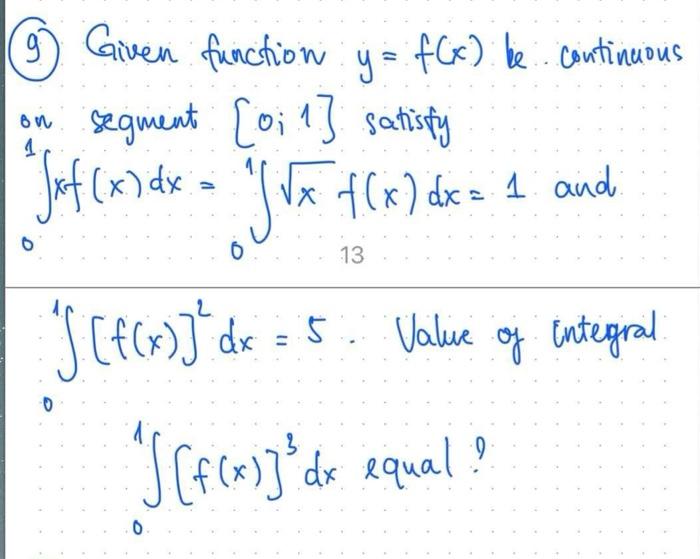 ⑨ Given function y = f(x) be continuous
on segment [0; 1] satisfy
∫₀¹ xf(x) dx = ∫₀¹ √x f(x) dx = 1 and
13
∫₀¹ [f(x)]² dx = 5. Value of integral
∫₀¹ [f(x)]³ dx equal?